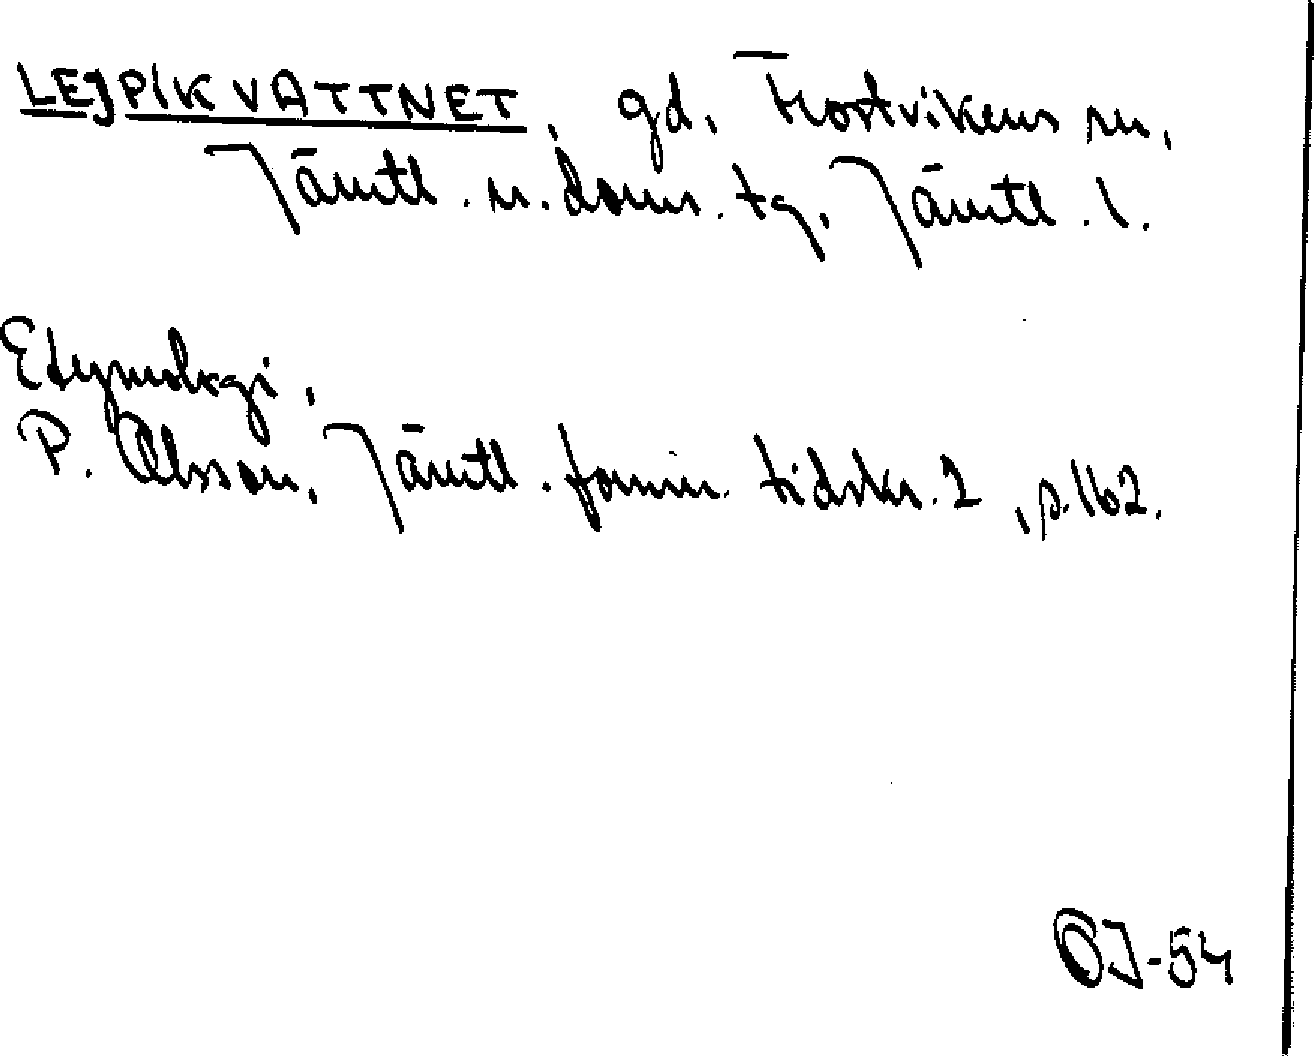 LEJPIKVATTNET, gd, Frostvikens sn,
Jämtl. n. doms. tg, Jämtl. l.
Etymologi,
P. Olsson, Jämtl. fornm. tidskr. 2, s. 162.
OJ-54